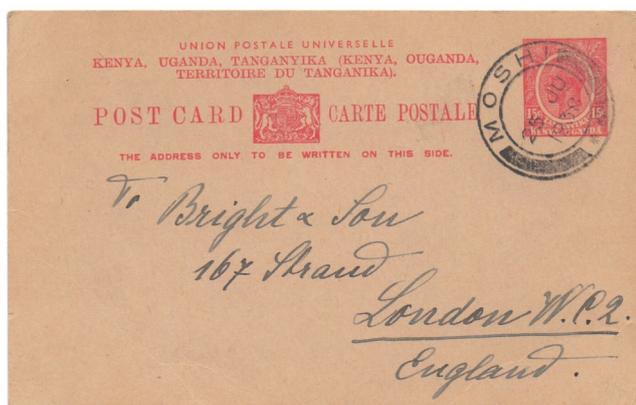 UNION POSTALE UNIVERSELLE
KENYA, UGANDA, TANGANYIKA (KENYA, OUGANDA,
TERRITOIRE DU TANGANIKA).
POST CARD CARTE POSTALE
THE ADDRESS ONLY TO BE WRITTEN ON THIS SIDE.
MOSHI
15 15
KENYA UGANDA
To Bright & Son
167 Strand
London W.C.2.
England.